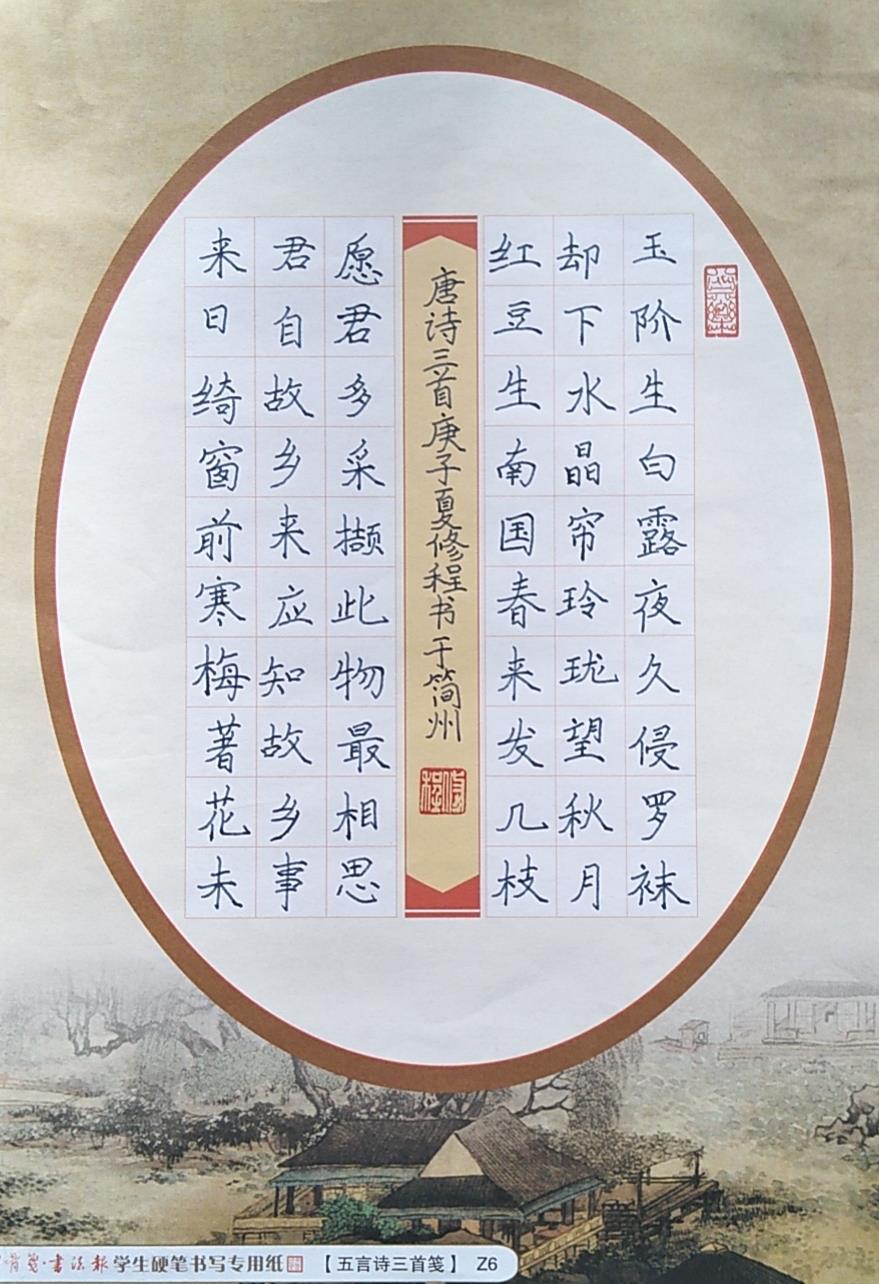 玉阶生白露夜久侵罗袜
却下水晶帘玲珑望秋月
红豆生南国春来发几枝
唐诗三首庚子夏修程书于简州
修程
愿君多采撷此物最相思
君自故乡来应知故乡事
来日绮窗前寒梅著花未
笺·书法报学生硬笔书写专用纸
【五言诗三首笺】 Z6